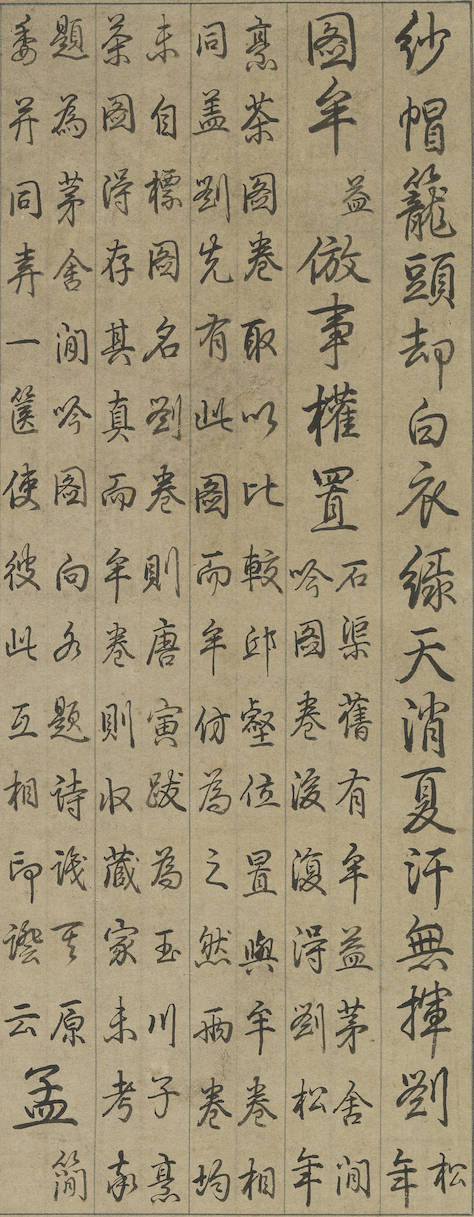 紗帽籠頭却白衣綠天消夏汗無揮劉松年
圖牟益倣事權置石渠舊有牟益茅舍閒
吟圖卷後復得劉松年
烹茶圖卷取以比較邱壑位置與牟卷相
同蓋劉先有此圖而牟仿為之然兩卷均
未自標圖名劉卷則唐寅跋為玉川子烹
茶圖得存其真而牟卷則收藏家未考
題為茅舍閒吟圖向各題詩識其原
委并同弆一篋使彼此互相印證云
孟簡